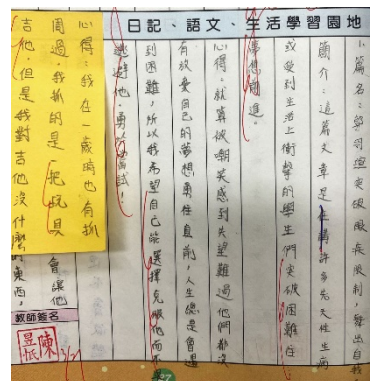 日記、語文、生活學習園地
1.篇名:學習迎突破服疾限制,舞出自我
簡介:這篇文章是在講許多先天性生病
或受到生活上衝擊的學生們突破困難往
夢想前進。
心得:就算被嘲笑感到失望難過他們都沒
有放棄自己的夢想勇往直前,人生總是會遇
到困難,所以我希望自己能選擇克服他而不是
逃避他,勇敢嘗試!
心得:我在一歲時也有抓
周過,我抓的是一把玩具
吉他,但是我對吉他沒什麼
會讓他
的東西,
教師簽名
陳
3/21